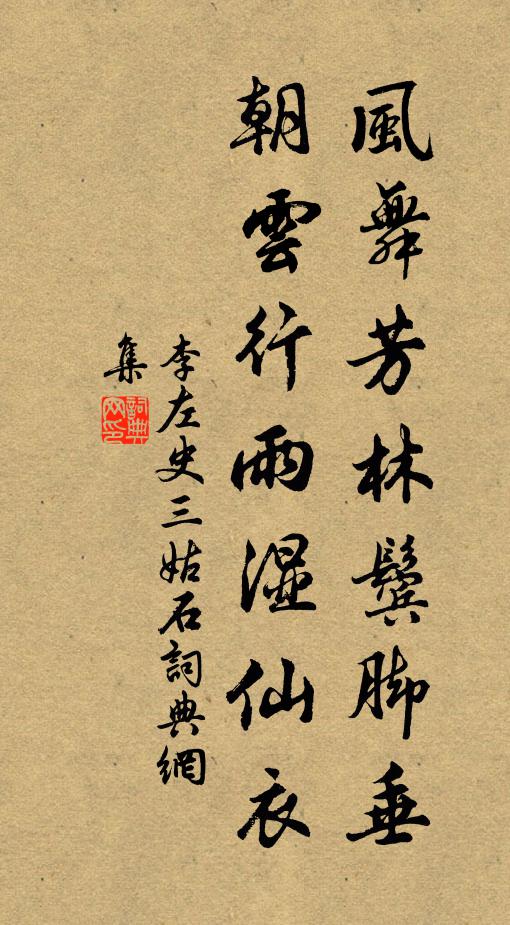 風舞芳林鬓脚垂
朝雲行雨濕仙衣
李左史三姑石詞典網
集
詞典
网印